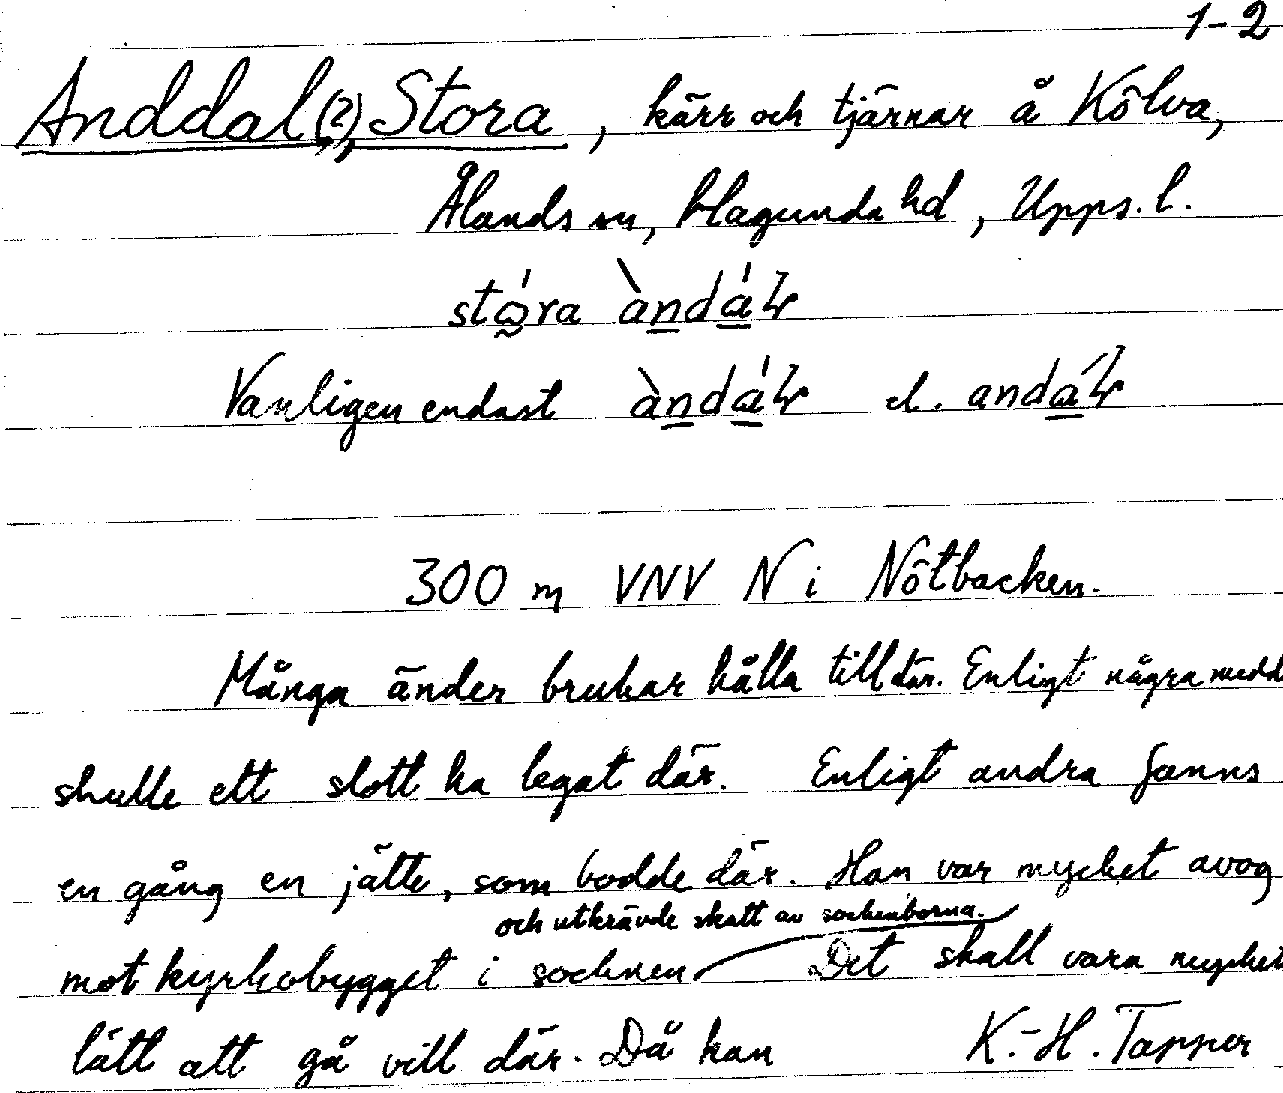 1-2
Anddal(?), Stora, kärr och tjärnar å Kölva,
Ålands sn, Hagunda hd, Upps. l.
Vanligen endast
300 m VNV N i Nötbacken.
Många änder brukar hålla till där. Enligt några medd
skulle ett slott ha legat där. Enligt andra fanns
en gång en jätte, som bodde där. Han var mycket avog
och utkrävde skatt av sockenborna.
mot kyrkobygget i socknen Det skall vara mycket
lätt att gå vill där. Då kan K.-H. Tapper